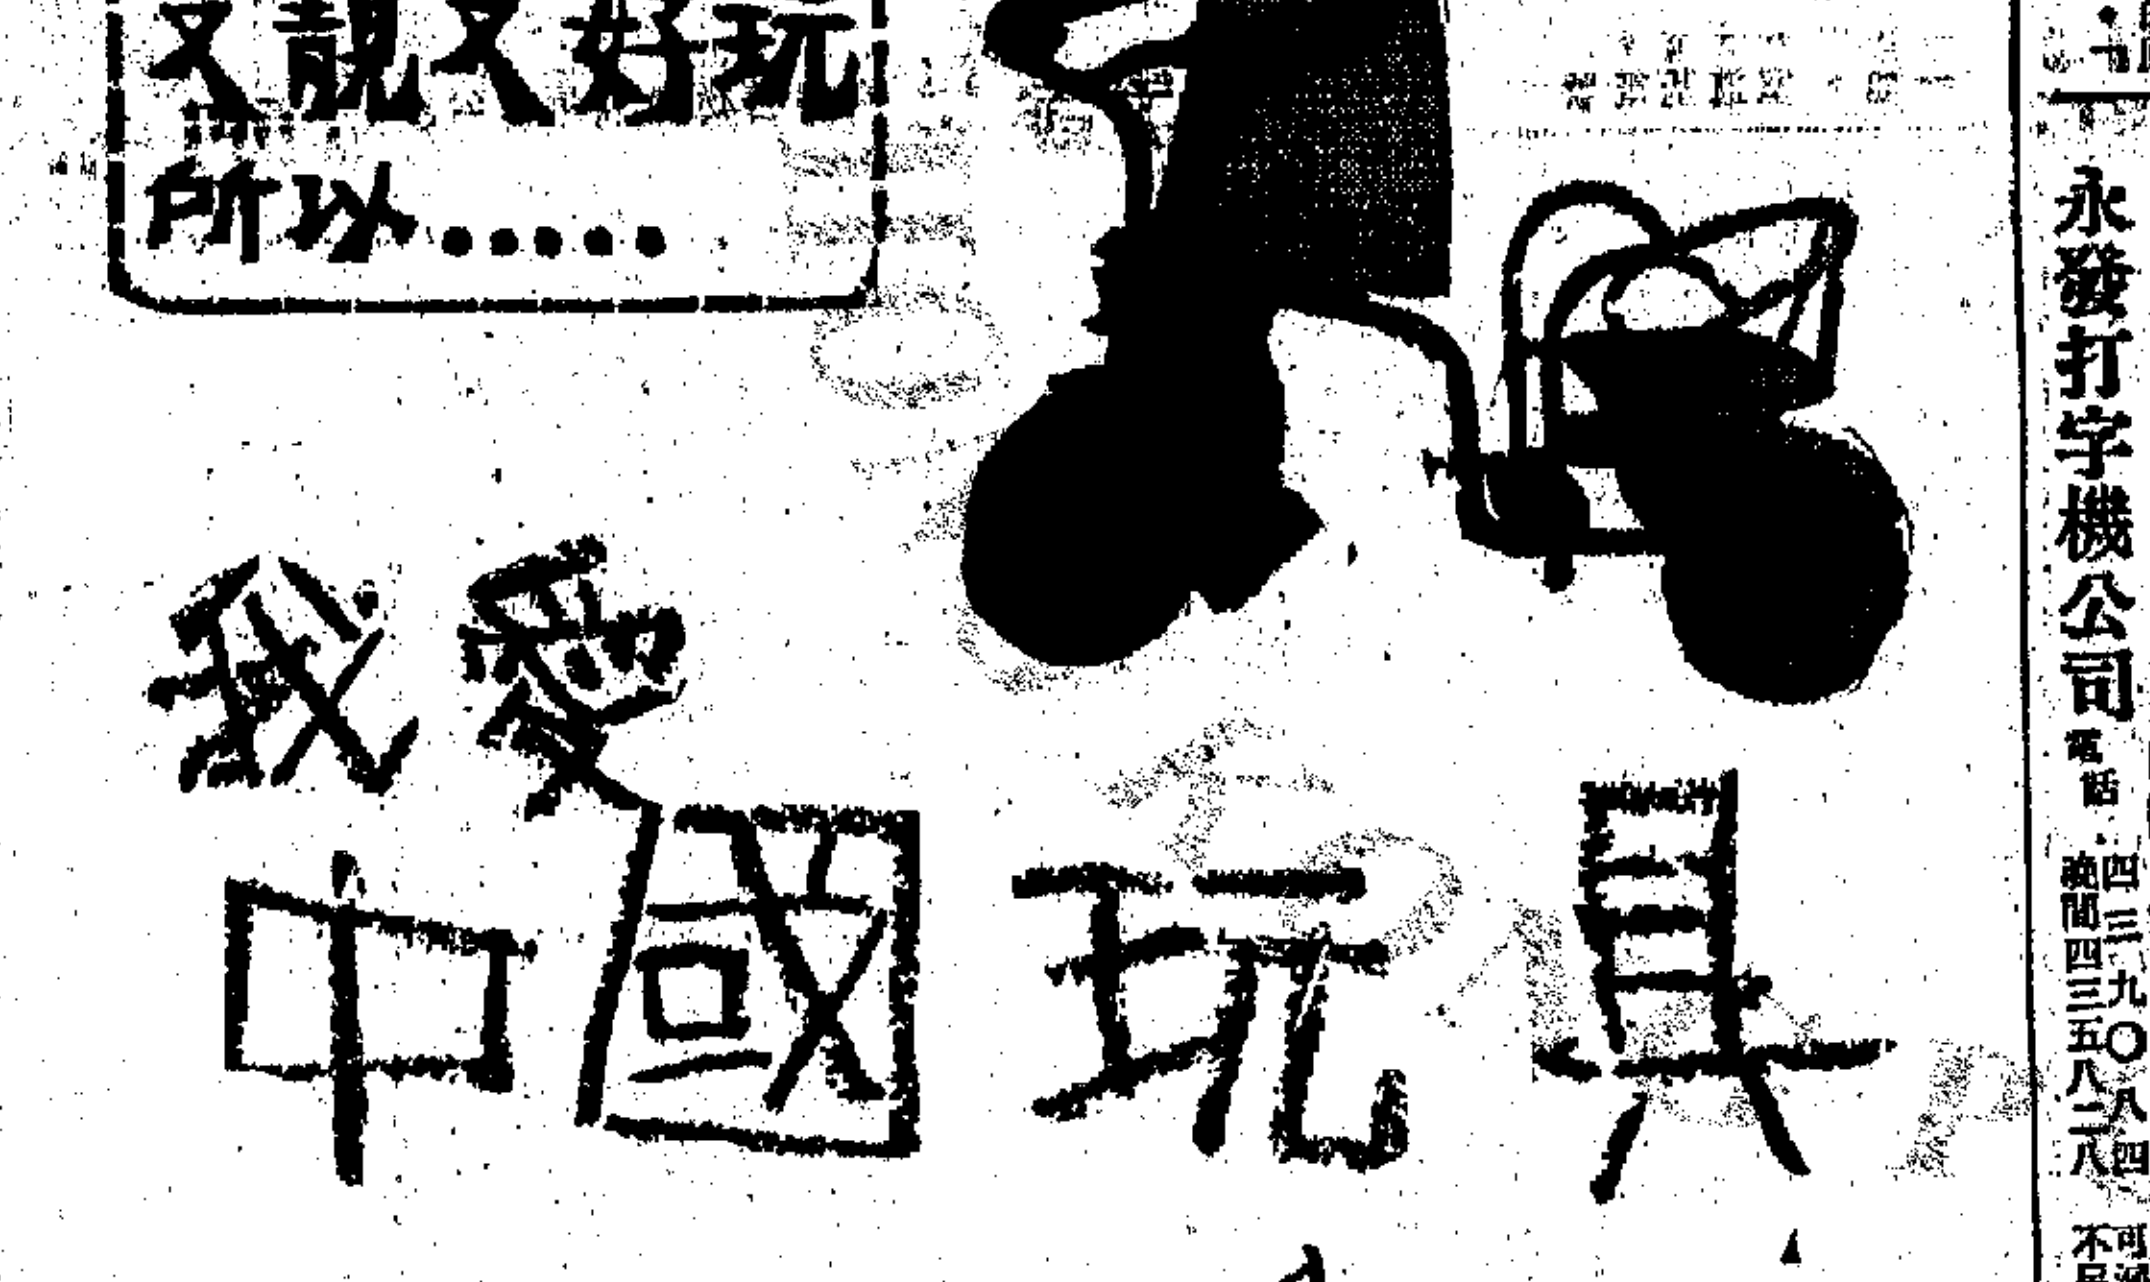 又靚又好玩
所以.....
我愛
中國玩具
永發打字機公司 電話:
四三九〇八四
晚間四三五八二八